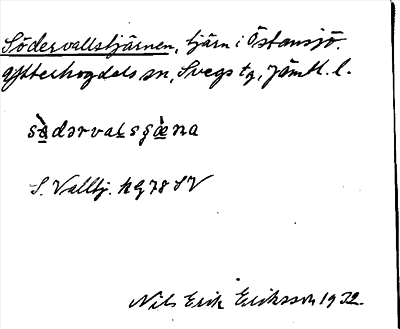 Södervallstjärnen, tjärn i Östansjö.
Ytterhogdals sn, Svegs tg, Jämtl. l.
S. Valltj. kg 78 SV
Nils Erik Eriksson 1932.